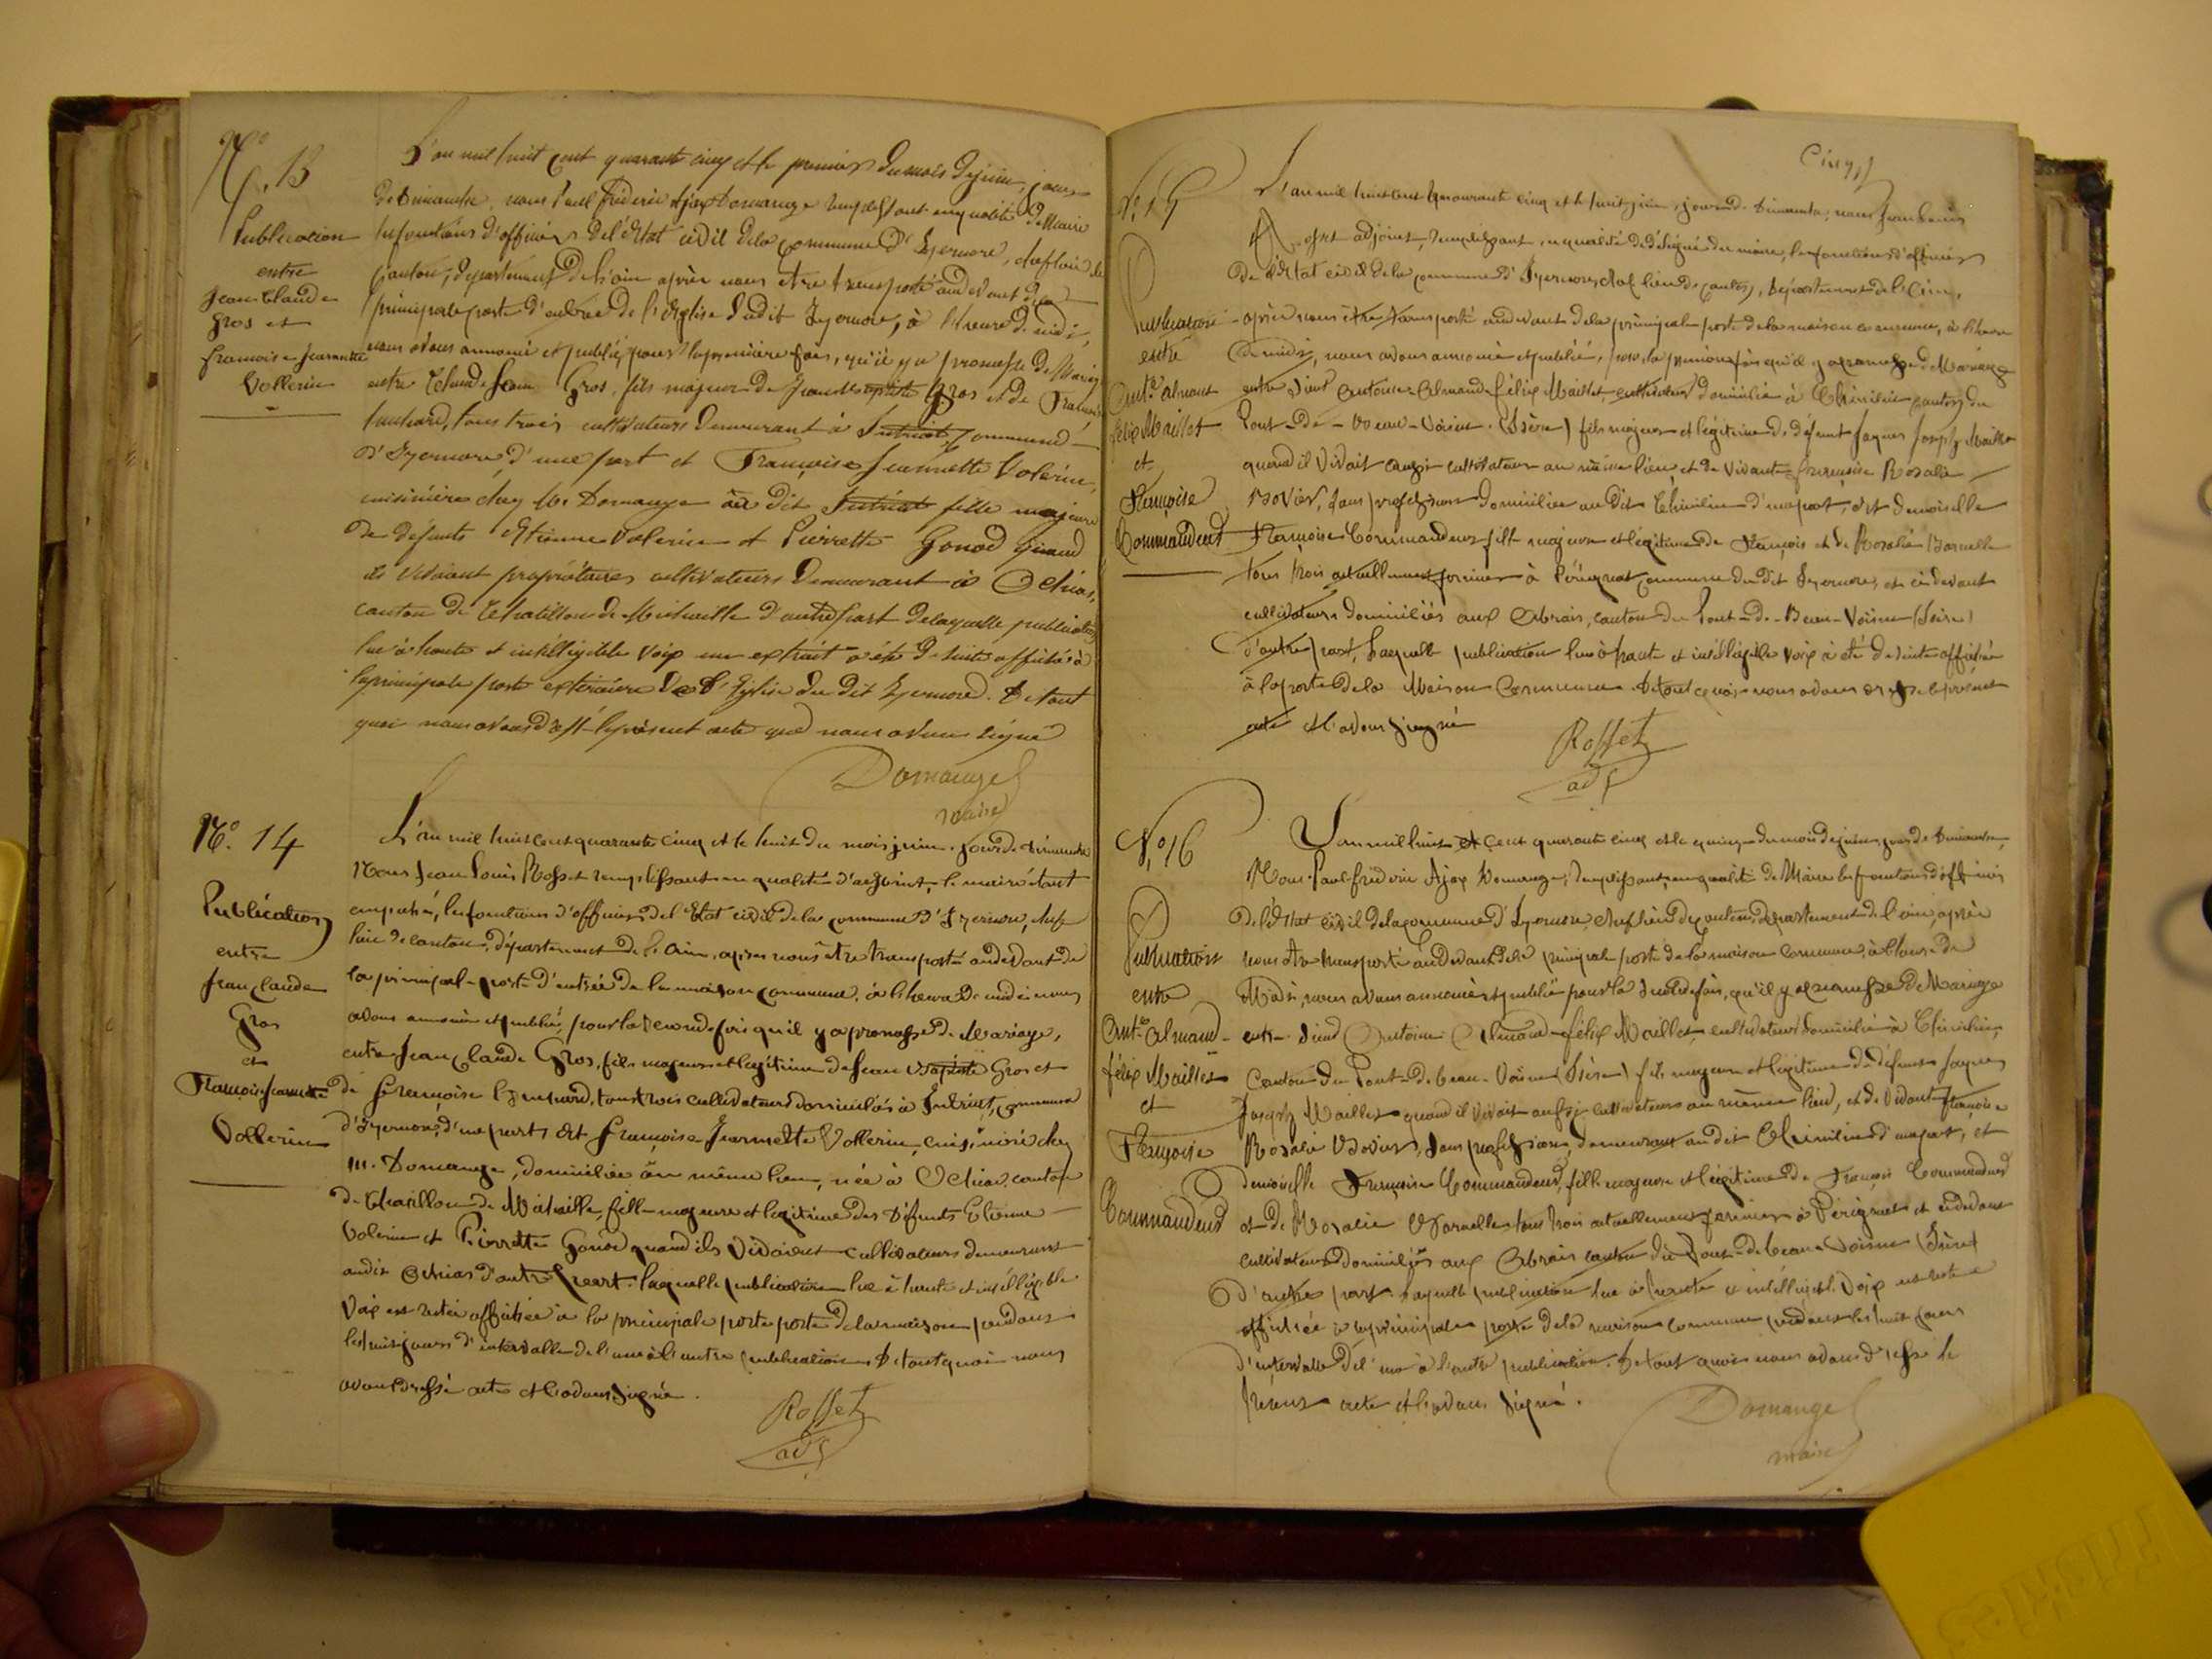 N.º 13
Publication
entre
Jean Claude
Gros et
francoise Jeannette
Vollerin
L'an mil huit cent quarante cinq et le premier du mois de juin, jour
de Dimanche, nous Paul Frédéric Ajax Domange remplissant en qualité de Maire
les fonctions d'officier de l'état civil de la commune d'Izernore, chef lieu de
canton, département de l'ain après nous etre transporté au devant de la
principale porte d'entrée de l'église dudit Izernore, à l'heure de midi,
nous avons annoncé et publié, pour la première fois, qu'il y a promesse de Mariage
entre Claude Jean Gros, fils majeur de Jean Baptiste Gros et de Francoise
tous trois cultivateurs demeurant à Intriat, commune
d'Izernore, d'une part et Françoise Jeannette Volerin,
cuisinière chez Mr. Domange au dit Intriat fille majeure
de défunts Etienne Volerin et Pierrette Gonod quand
ils vivaient propriétaires cultivateurs demeurant à Ochiaz,
canton de Chatillon de Michaille d'autre part de laquelle publication
lue à haute et intélligible voix un extrait a été de suite affiché à
la principale porte extérieure de l'Eglise du dit Izernore. De tout
quoi nous avons dressé le présent acte que nous avons signé
Domange
maire
N.º 14
Publication
entre
Jean Claude
Gros
et
Françoise Jeannette
Vollerin
L'an mil huit cent quarante cinq et le huit du mois juin, jour de dimanche
Nous Jean Louis Rosset remplissant en qualité d'adjoint, le maire étant
empeché, les fonctions d'officier de l'Etat civil de la commune d'Izernore, chef
lieu de canton, département de l'Ain, après nous être transporté au devant de
la principale porte d'entrée de la maison commune, à l'heure de midi nous
avons annoncé et publié, pour la seconde fois qu'il y a promesse de Mariage,
entre Jean Claude Gros, fils majeur et légitime de Jean Baptiste Gros et
de françoise tous trois cultivateurs domiciliés à Intriat, commune
d'Izernore, d'une part, et françoise Jeannette Vollerin, cuisinière chez
M. Domange, domiciliée au même lieu, née à Ochiaz, canton
de Chatillon de Michaille, fille majeure et légitime des défunts Etienne
Volerin et Pierrette Gonod quand ils vivaient cultivateurs demeurant
audit Ochiaz d'autre part. laquelle publication lue à haute et intélligible
voix est restée affichée à la principale porte porte de la maison pendant
les huit jours d'intervalle de l'une à l'autre publication. De tout quoi nous
avons dressé acte et l'avons signé.
Rosset
adj
Cinq
N.º 15
Publication
entre
Ant.e almand
félix Maillet
et
Françoise
Commandeur
L'an mil huit cent quarante cinq et le huit juin, jour de Dimanche, nous Jean Louis
Rosset adjoint, remplissant, en qualité de délégué du maire, les fonctions d'officier
de l'état civil de la commune d'Izernore, chef lieu de canton, département de l'Ain,
après nous être transporté au devant de la principale porte de la maison commune, à l'heure
de midi, nous avons annoncé et publié, pour la première fois qu'il y a promesse de Mariage
entre sieur Antoine Almand félix Maillet, cultivateur domicilié à Chimilin canton du
Pont-de-Beau-Voisin (Isère) fils majeur et légitime de défunt Jaques Joseph Maillet
quand il vivait aussi cultivateur au même lieu et de vivante françoise Rosalie
Bovier, sans profession domiciliée au dit Chimilin d'une part, et demoiselle
Françoise Commandeur fille majeure et légitime de François et de Rosalie
tous trois actuellement fermiers à Pérignat commune du dit Izernore, et ci devant
cultivateurs domiciliés aux Abrais, canton du Pont-de-Beau-Voisin (Isère)
d'autre part, Laquelle publication lue à haute et intélligible voix à été de suite affichée
à la porte de la Maison Commune. De tout ce quoi nous avons dressé le présent
acte et l'avons signé
Rosset
adj
N.º 16
Publication
entre
Ant.e almand
félix Maillet
et
Françoise
Commandeur
L'an mil huit et cent quarante cinq et le quinze du mois de juin, jour de Dimanche,
Nous Paul frédéric Ajax Domange, remplissant, en qualité de Maire les fonctions d'officier
de l'état civil de la commune d'Izernore, chef lieu de canton, département de l'ain, après
nous être transporté au devant de la principale porte de la maison commune, à l'heure de
Midi, nous avons annoncé et publié pour la seconde fois, qu'il y a promesse de Mariage
entre sieur Antoine Almand félix Maillet, cultivateur domicilié à Chimilin,
canton du Pont-de-beau-Voisin (Isère) fils majeur et légitime de défunt Jaques
Joseph Maillet quand il vivait aussi cultivateur au même lieu, et de vivante françoise
Rosalie Bovier, sans profession, demeurant au dit Chimilin d'une part, et
demoiselle Françoise Commandeur, fille majeure et légitime de François Commandeur
et de Rosalie tous trois actuellement fermiers à Pérignat et ci devant
cultivateurs domiciliés aux Abrais canton du Pont-de-beau-Voisin (Isère)
d'autre part. Laquelle publication lue à haute et intélligible voix est restée
affichée à la principale porte de la maison commune pendant les huit jours
d'intervalle de l'une à l'autre publication. De tout quoi nous avons dressé le
présent acte et l'avons signé.
Domange
maire